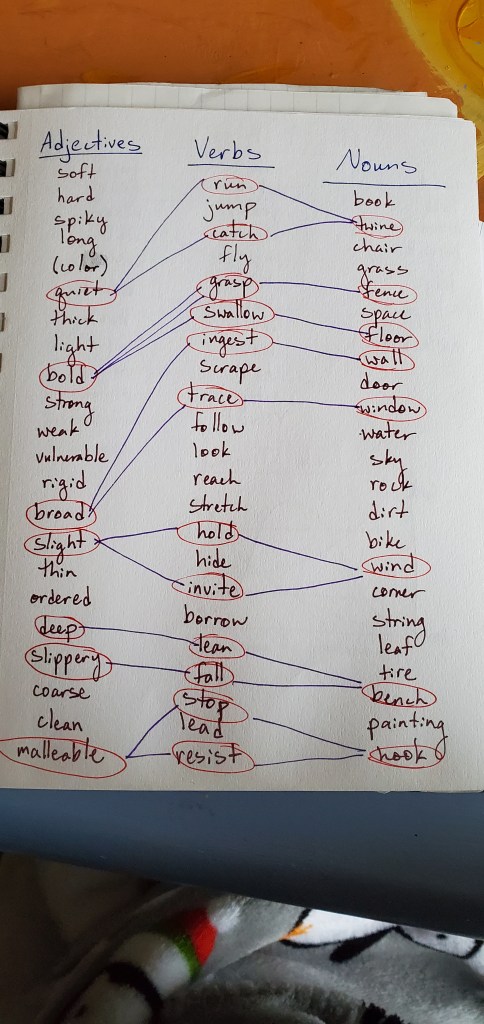 Adjectives
soft
hard
spiky
long
(color)
quiet
thick
light
bold
strong
weak
vulnerable
rigid
broad
slight
thin
ordered
deep
slippery
coarse
clean
malleable
Verbs
run
jump
catch
fly
grasp
swallow
ingest
scrape
trace
follow
look
reach
stretch
hold
hide
invite
borrow
lean
fall
stop
lead
resist
Nouns
book
twine
chair
grass
fence
space
floor
wall
door
window
water
sky
rock
dirt
bike
wind
corner
string
leaf
tire
bench
painting
hook